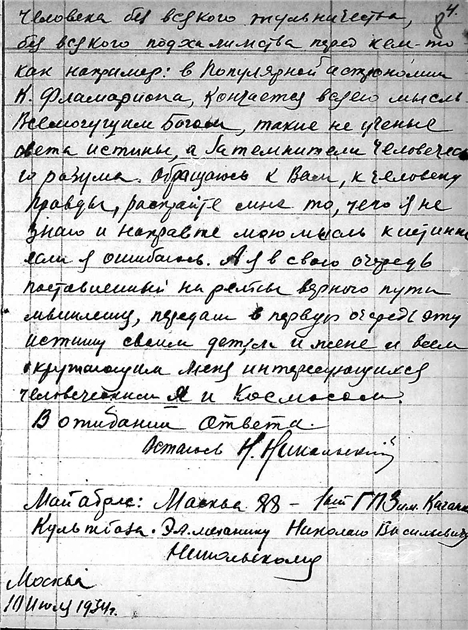 4.
человека без всякого жульничества,
без всякого подхалимства перед кем-то
как например: в Популярной астрономии
К. Фламариона, кончается всего мысль
Всемогущим Богом, такие не ученые
света истины, а затемнители человеческо
го разума. Обращаюсь к Вам, к человеку
правды, раскройте мне то, чего я не
знаю и направте мою мысль к истине
если я ошибаюсь. А я в свою очередь
поставленный на рельсы верного пути
мышления, передам в первую очередь эту
истину своим детям и жене и всем
окружающим меня интересующимся
человеческим Я и Космосом.
В ожидании ответа.
Остаюсь Н. Никольский
Мой адрес: Москва 88 – 1ый ГПЗ им. Кагано
Культбаза. Эл. механику Николаю Васильевичу
Никольскому
Москва
10 Июля 1934г.